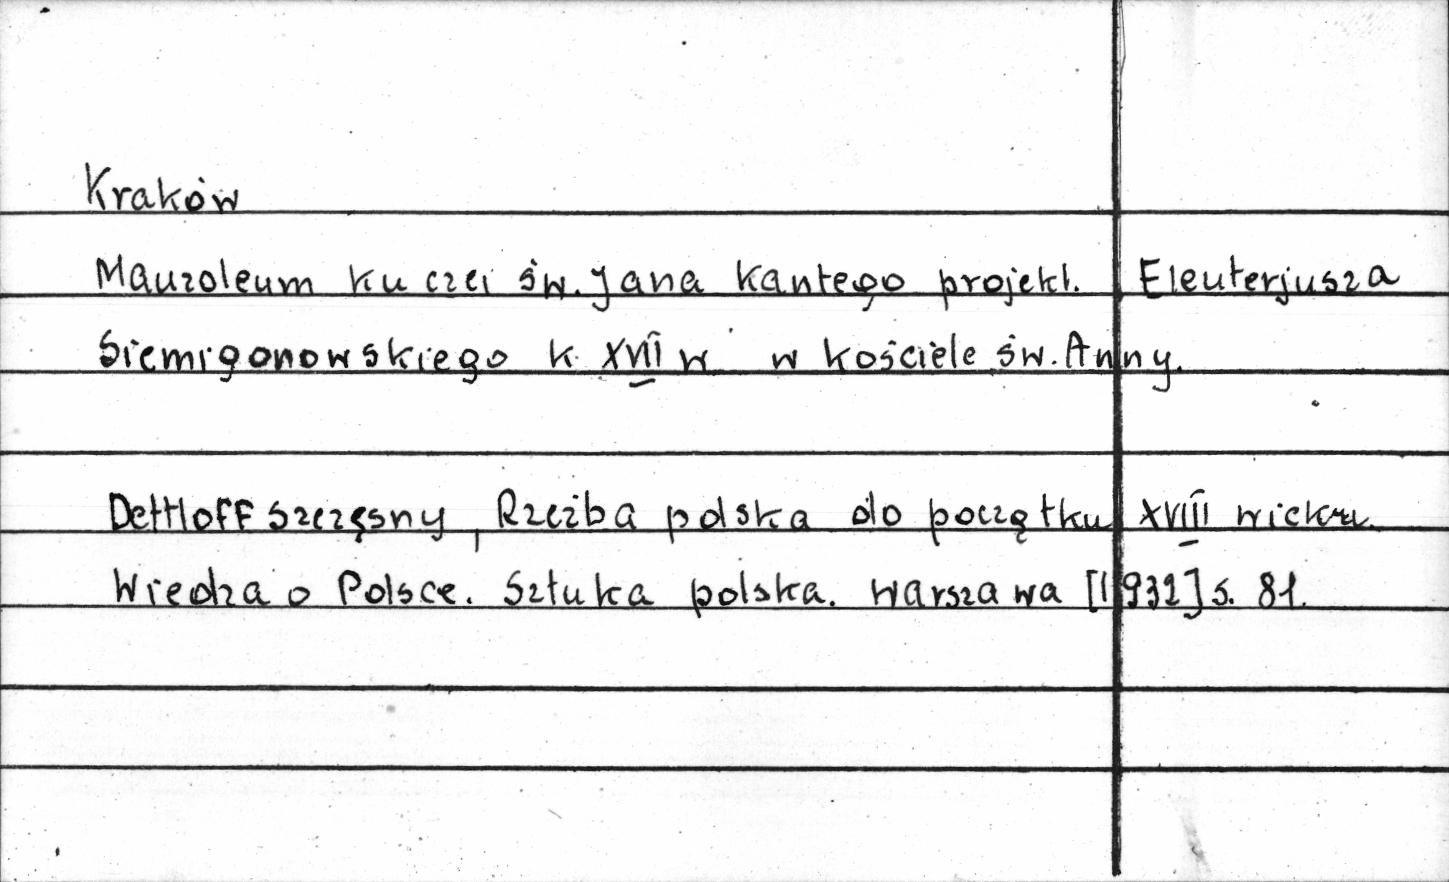 Kraków
Mauzoleum ku czci św. Jana Kantego projekt. Eleuterjusza
Siemigonowskiego k. XVII w w kościele św. Anny.
Dettloff Szczęsny, Rzeźba polska do początku XVIII wieku.
Wiedza o Polsce. Sztuka polska. Warszawa [1932] s. 81.